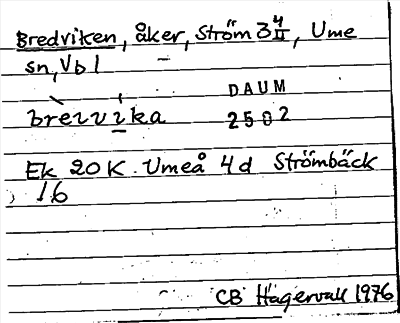 Bredviken, åker, Ström 3 4/II, Ume
sn, Vbl
DAUM
brèivíka 2502
Ek 20 K. Umeå 4 d Strömbäck
16
CB Hägervall 1976